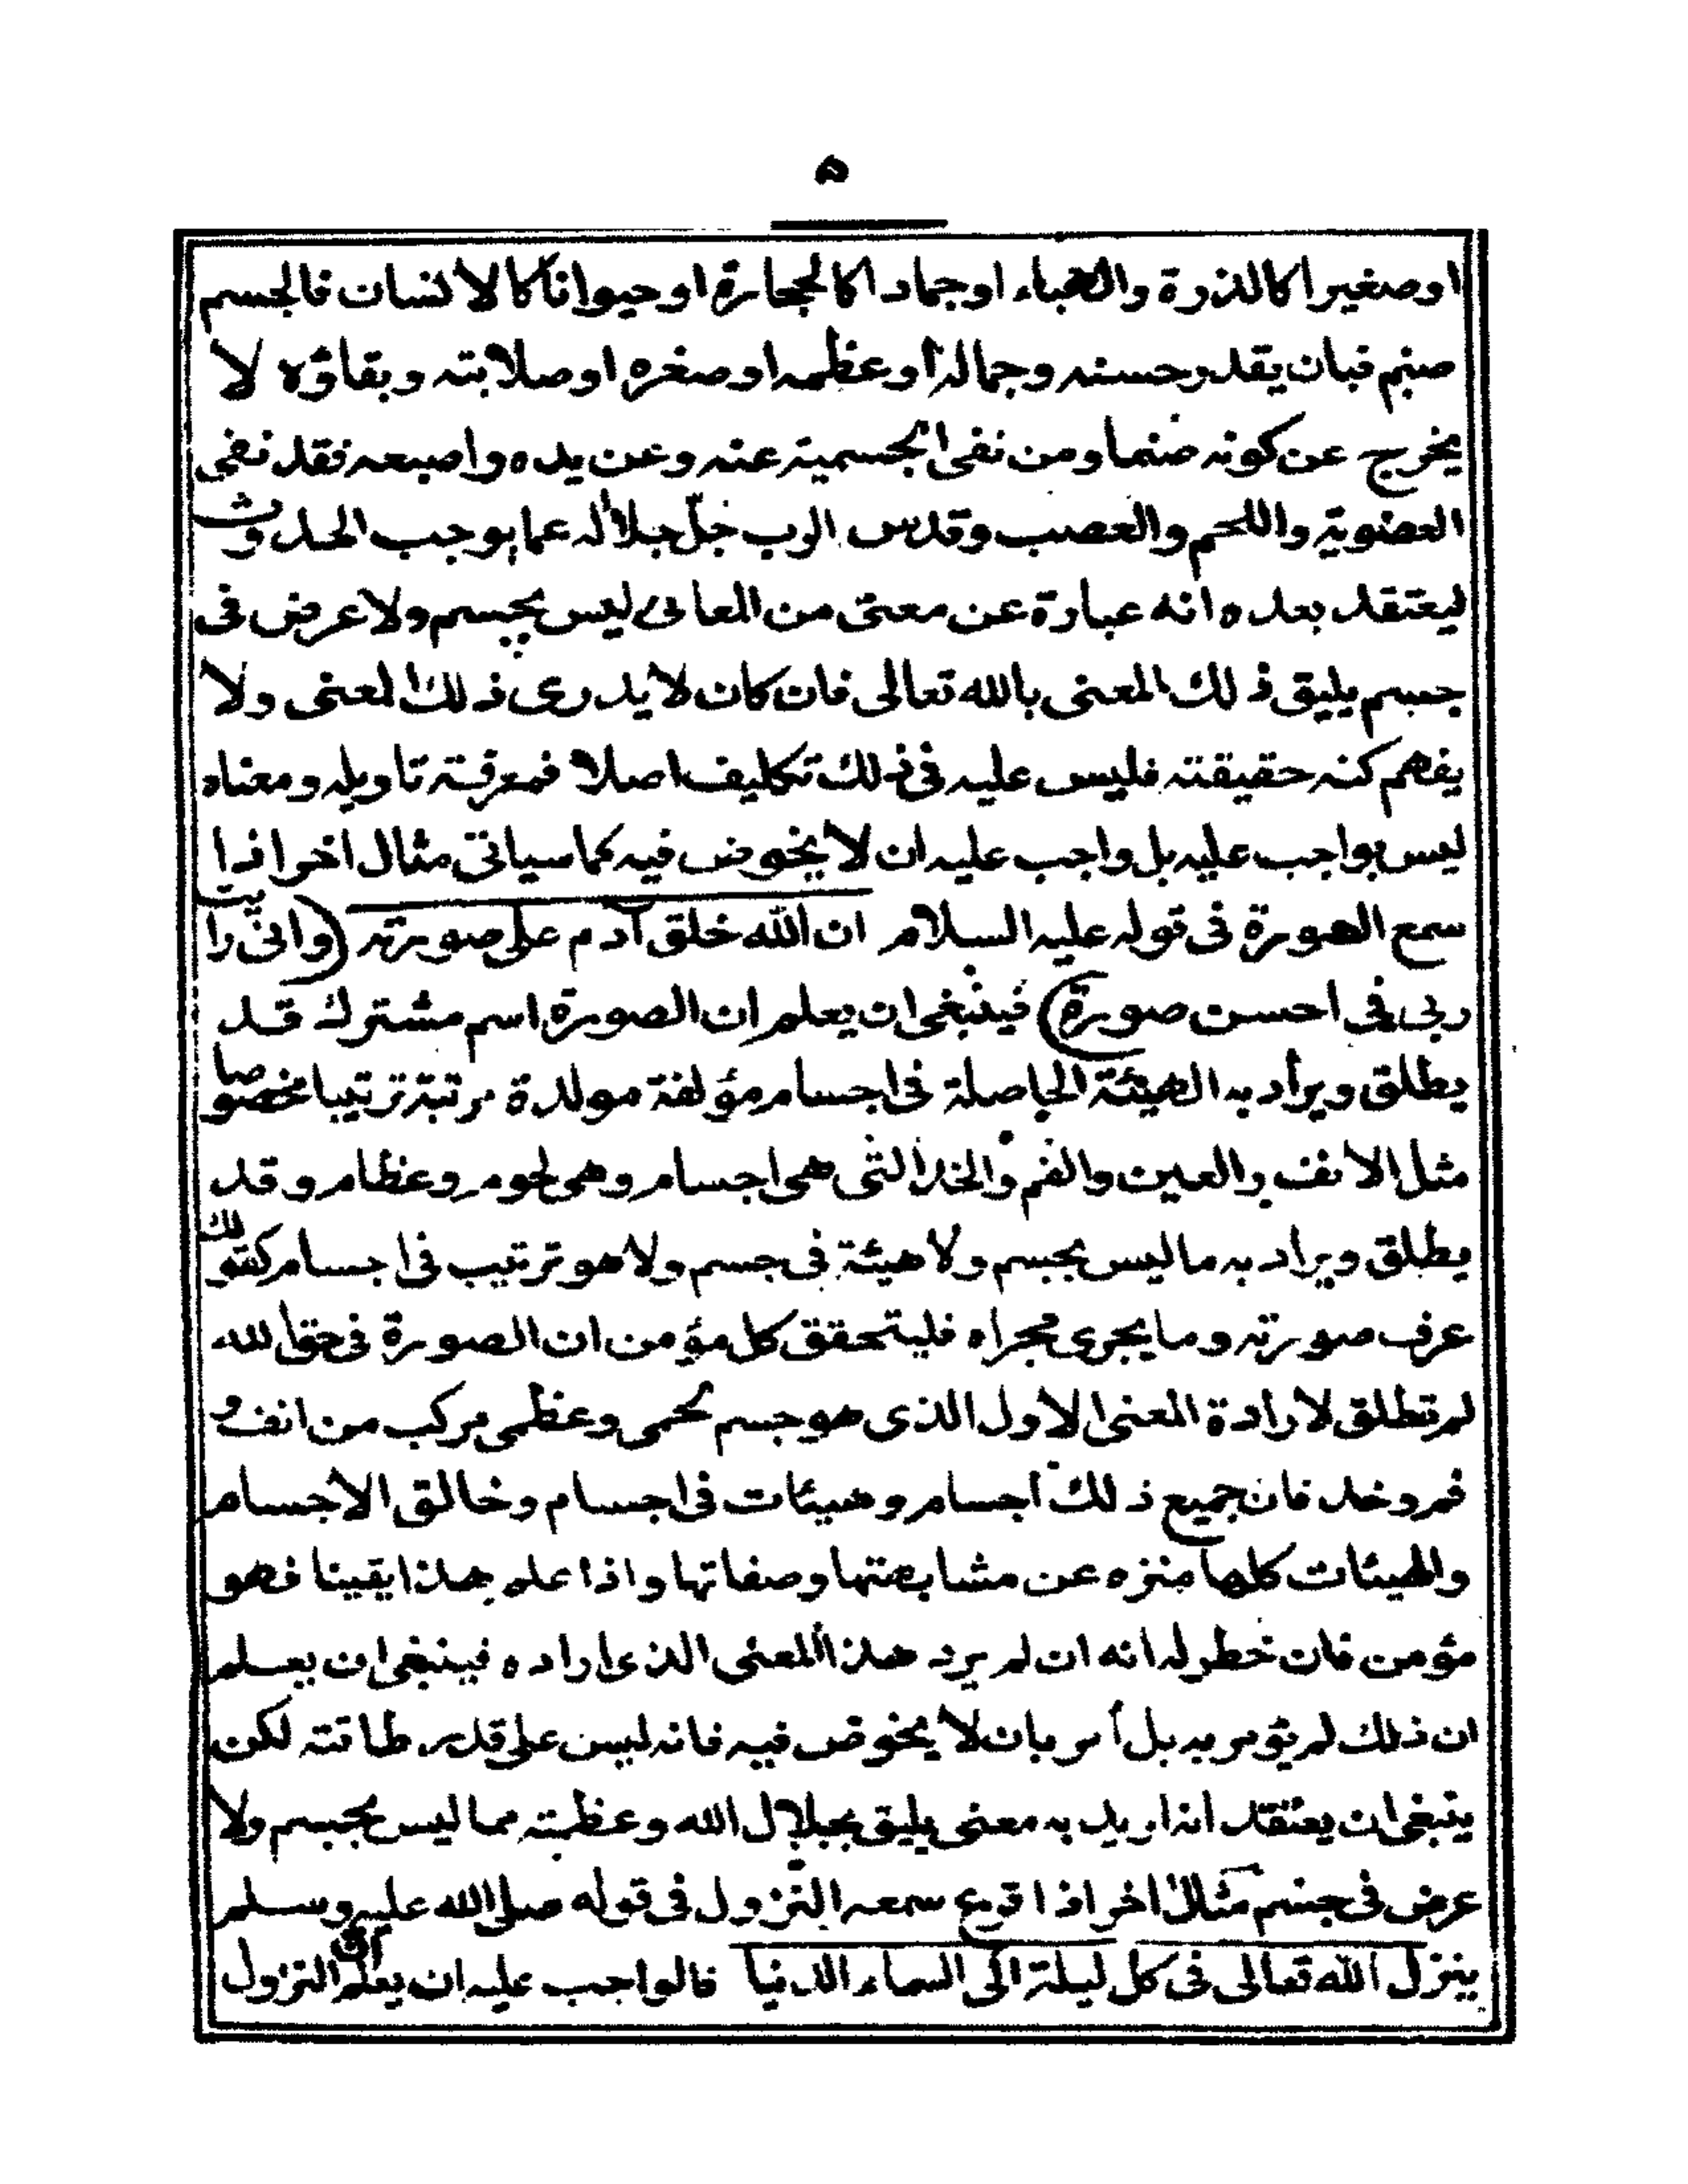 ٥
او صغيرا كالذرة والهباء او جمادا كالحجارة او حيوانا كالانسان فالجسم
صنم فبان يقدر حسنه وجماله او عظمه او صغره او صلابته وبقاؤه لا
يخرج عن كونه صنما ومن نفى الجسمية عنه وعن يده واصبعه فقد نفى
العضوية واللحم والعصب وقدس الرب جلّ جلاله عما يوجب الحدوث
ليعتقد بعده انه عبارة عن معنى من المعانى ليس بجسم ولا عرض فى
جسم يليق ذلك المعنى بالله تعالى فان كان لا يدرى ذلك المعنى ولا
يفهم كنه حقيقته فليس عليه فى ذلك تكليف اصلا فمعرفة تاويله ومعناه
ليس بواجب عليه بل واجب عليه ان لا يخوض فيه كما سياتى مثال اخر اذا
سمع الصورة فى قوله عليه السلام ان الله خلق آدم على صورته (وانى رايت
ربى فى احسن صورة) فينبغى ان يعلم ان الصورة اسم مشترك قد
يطلق ويراد به الهيئة الحاصلة فى اجسام مؤلفة مولدة مرتبة ترتيبا مخصوصا
مثل الانف والعين والفم والخد التى هى اجسام وهى لحوم وعظام وقد
يطلق ويراد به ما ليس بجسم ولا هيئة فى جسم ولا هو ترتيب فى اجسام كقولك
عرف صورته وما يجرى مجراه فليتحقق كل مؤمن ان الصورة فى حق الله
لم تطلق لارادة المعنى الاول الذى هو جسم لحمى وعظمى مركب من انف و
فم وخد فان جميع ذلك اجسام وهيئات فى اجسام وخالق الاجسام
والهيئات كلها منزه عن مشابهتها وصفاتها واذا علم هذا يقينا فهو
مؤمن فان خطر له انه ان لم يرد هذا المعنى الذى اراده فينبغى ان يعلم
ان ذلك لم يؤمر به بل أمر بان لا يخوض فيه فانه ليس على قدر طاقته لكن
ينبغى ان يعتقد انه اريد به معنى يليق بجلال الله وعظمته مما ليس بجسم ولا
عرض فى جسم مثال اخر اذا قرع سمعه النزول فى قوله صلى الله عليه وسلم
ينزل الله تعالى فى كل ليلة الى السماء الدنيا فالواجب عليه ان يعلم ان النزول